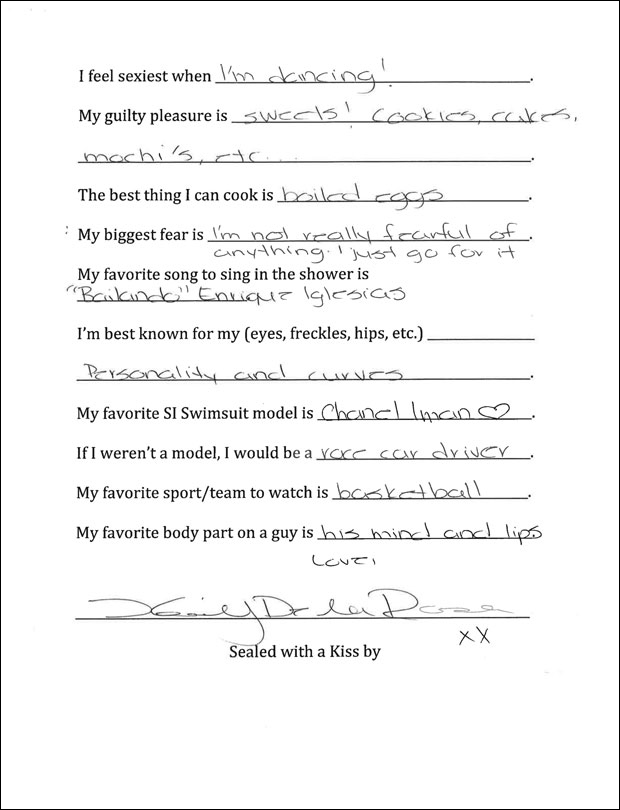 I feel sexiest when I'm dancing!.
My guilty pleasure is sweets! Cookies, cakes,
mochi's, etc....
The best thing I can cook is boiled eggs.
My biggest fear is I'm not really fearful of.
anything. I just go for it
My favorite song to sing in the shower is
"Bailando" Enrique Iglesias
I'm best known for my (eyes, freckles, hips, etc.)
Personality and curves.
My favorite SI Swimsuit model is Chanel Iman ♡.
If I weren't a model, I would be a race car driver.
My favorite sport/team to watch is basketball.
My favorite body part on a guy is his mind and lips
Love,
De la Rosa
XX
Sealed with a Kiss by